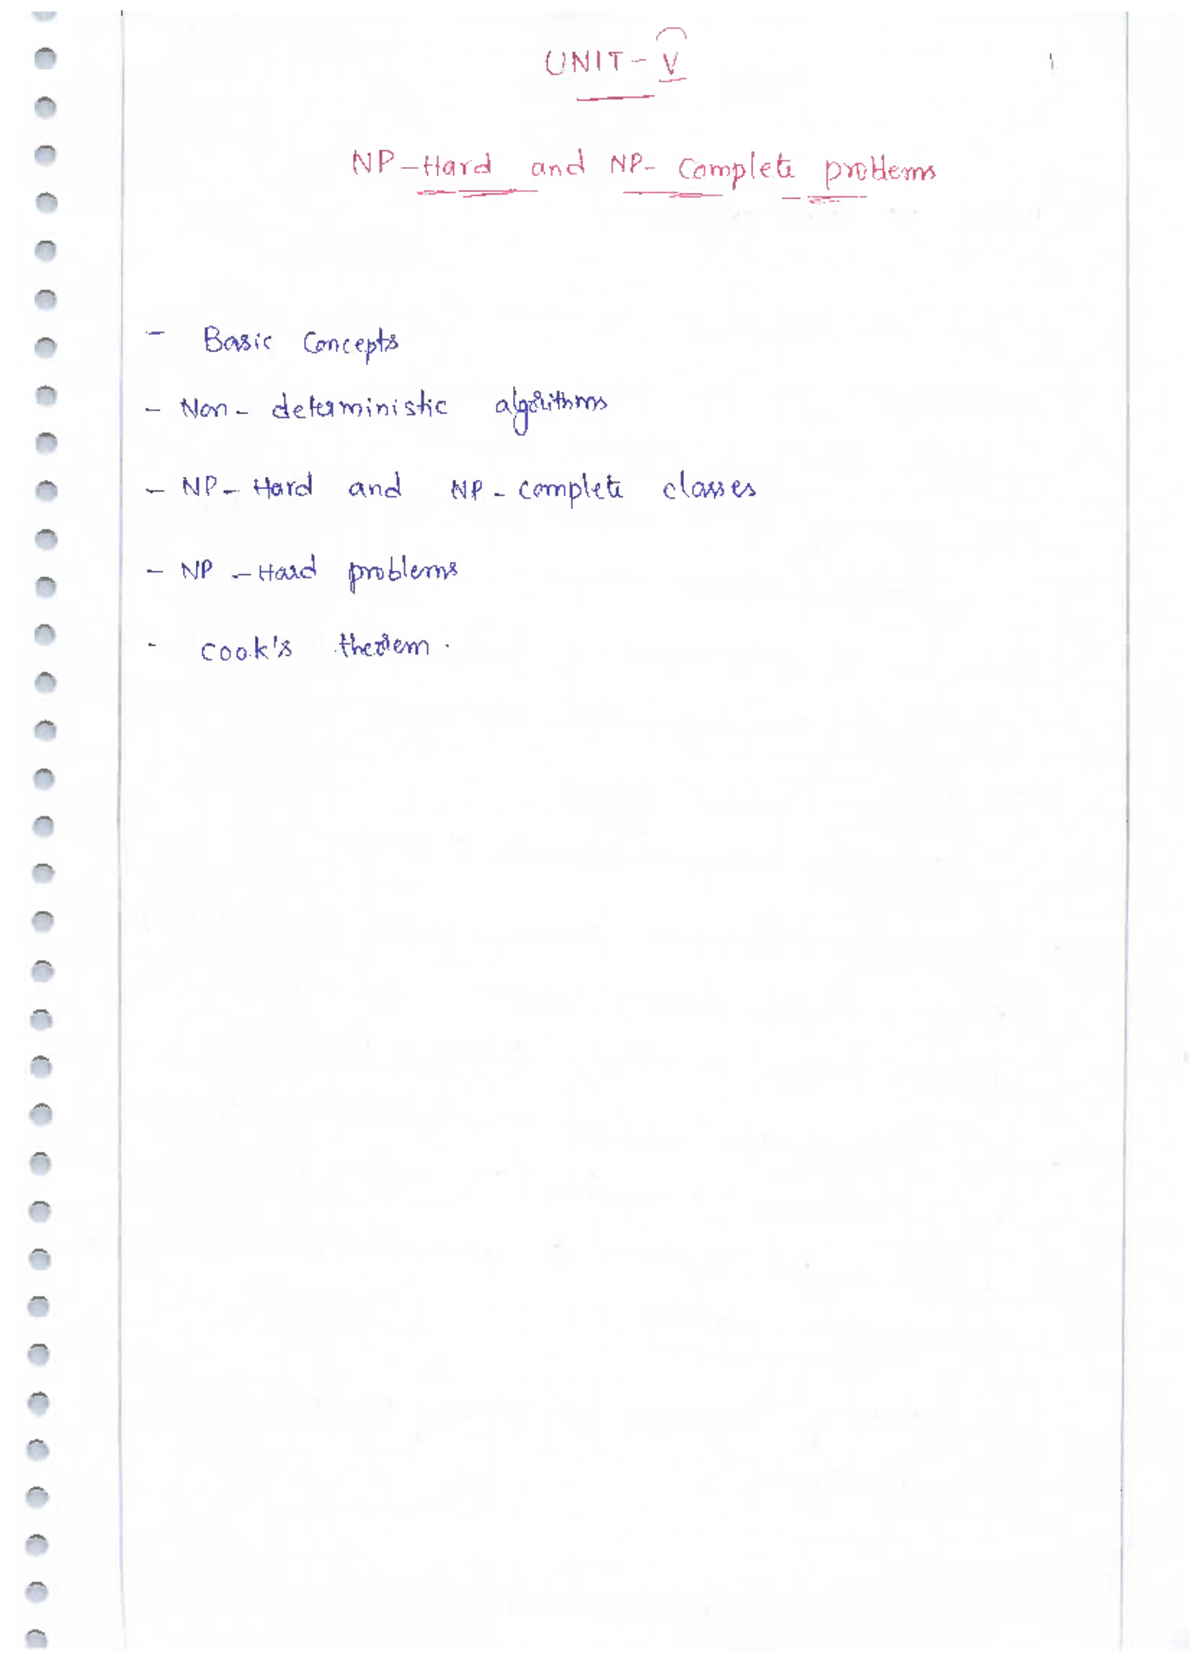 UNIT-V
1
NP-Hard and NP-Complete problems
- Basic Concepts
- Non-deterministic algorithms
- NP-Hard and NP-Complete classes
- NP-Hard problems
- Cook's theorem.